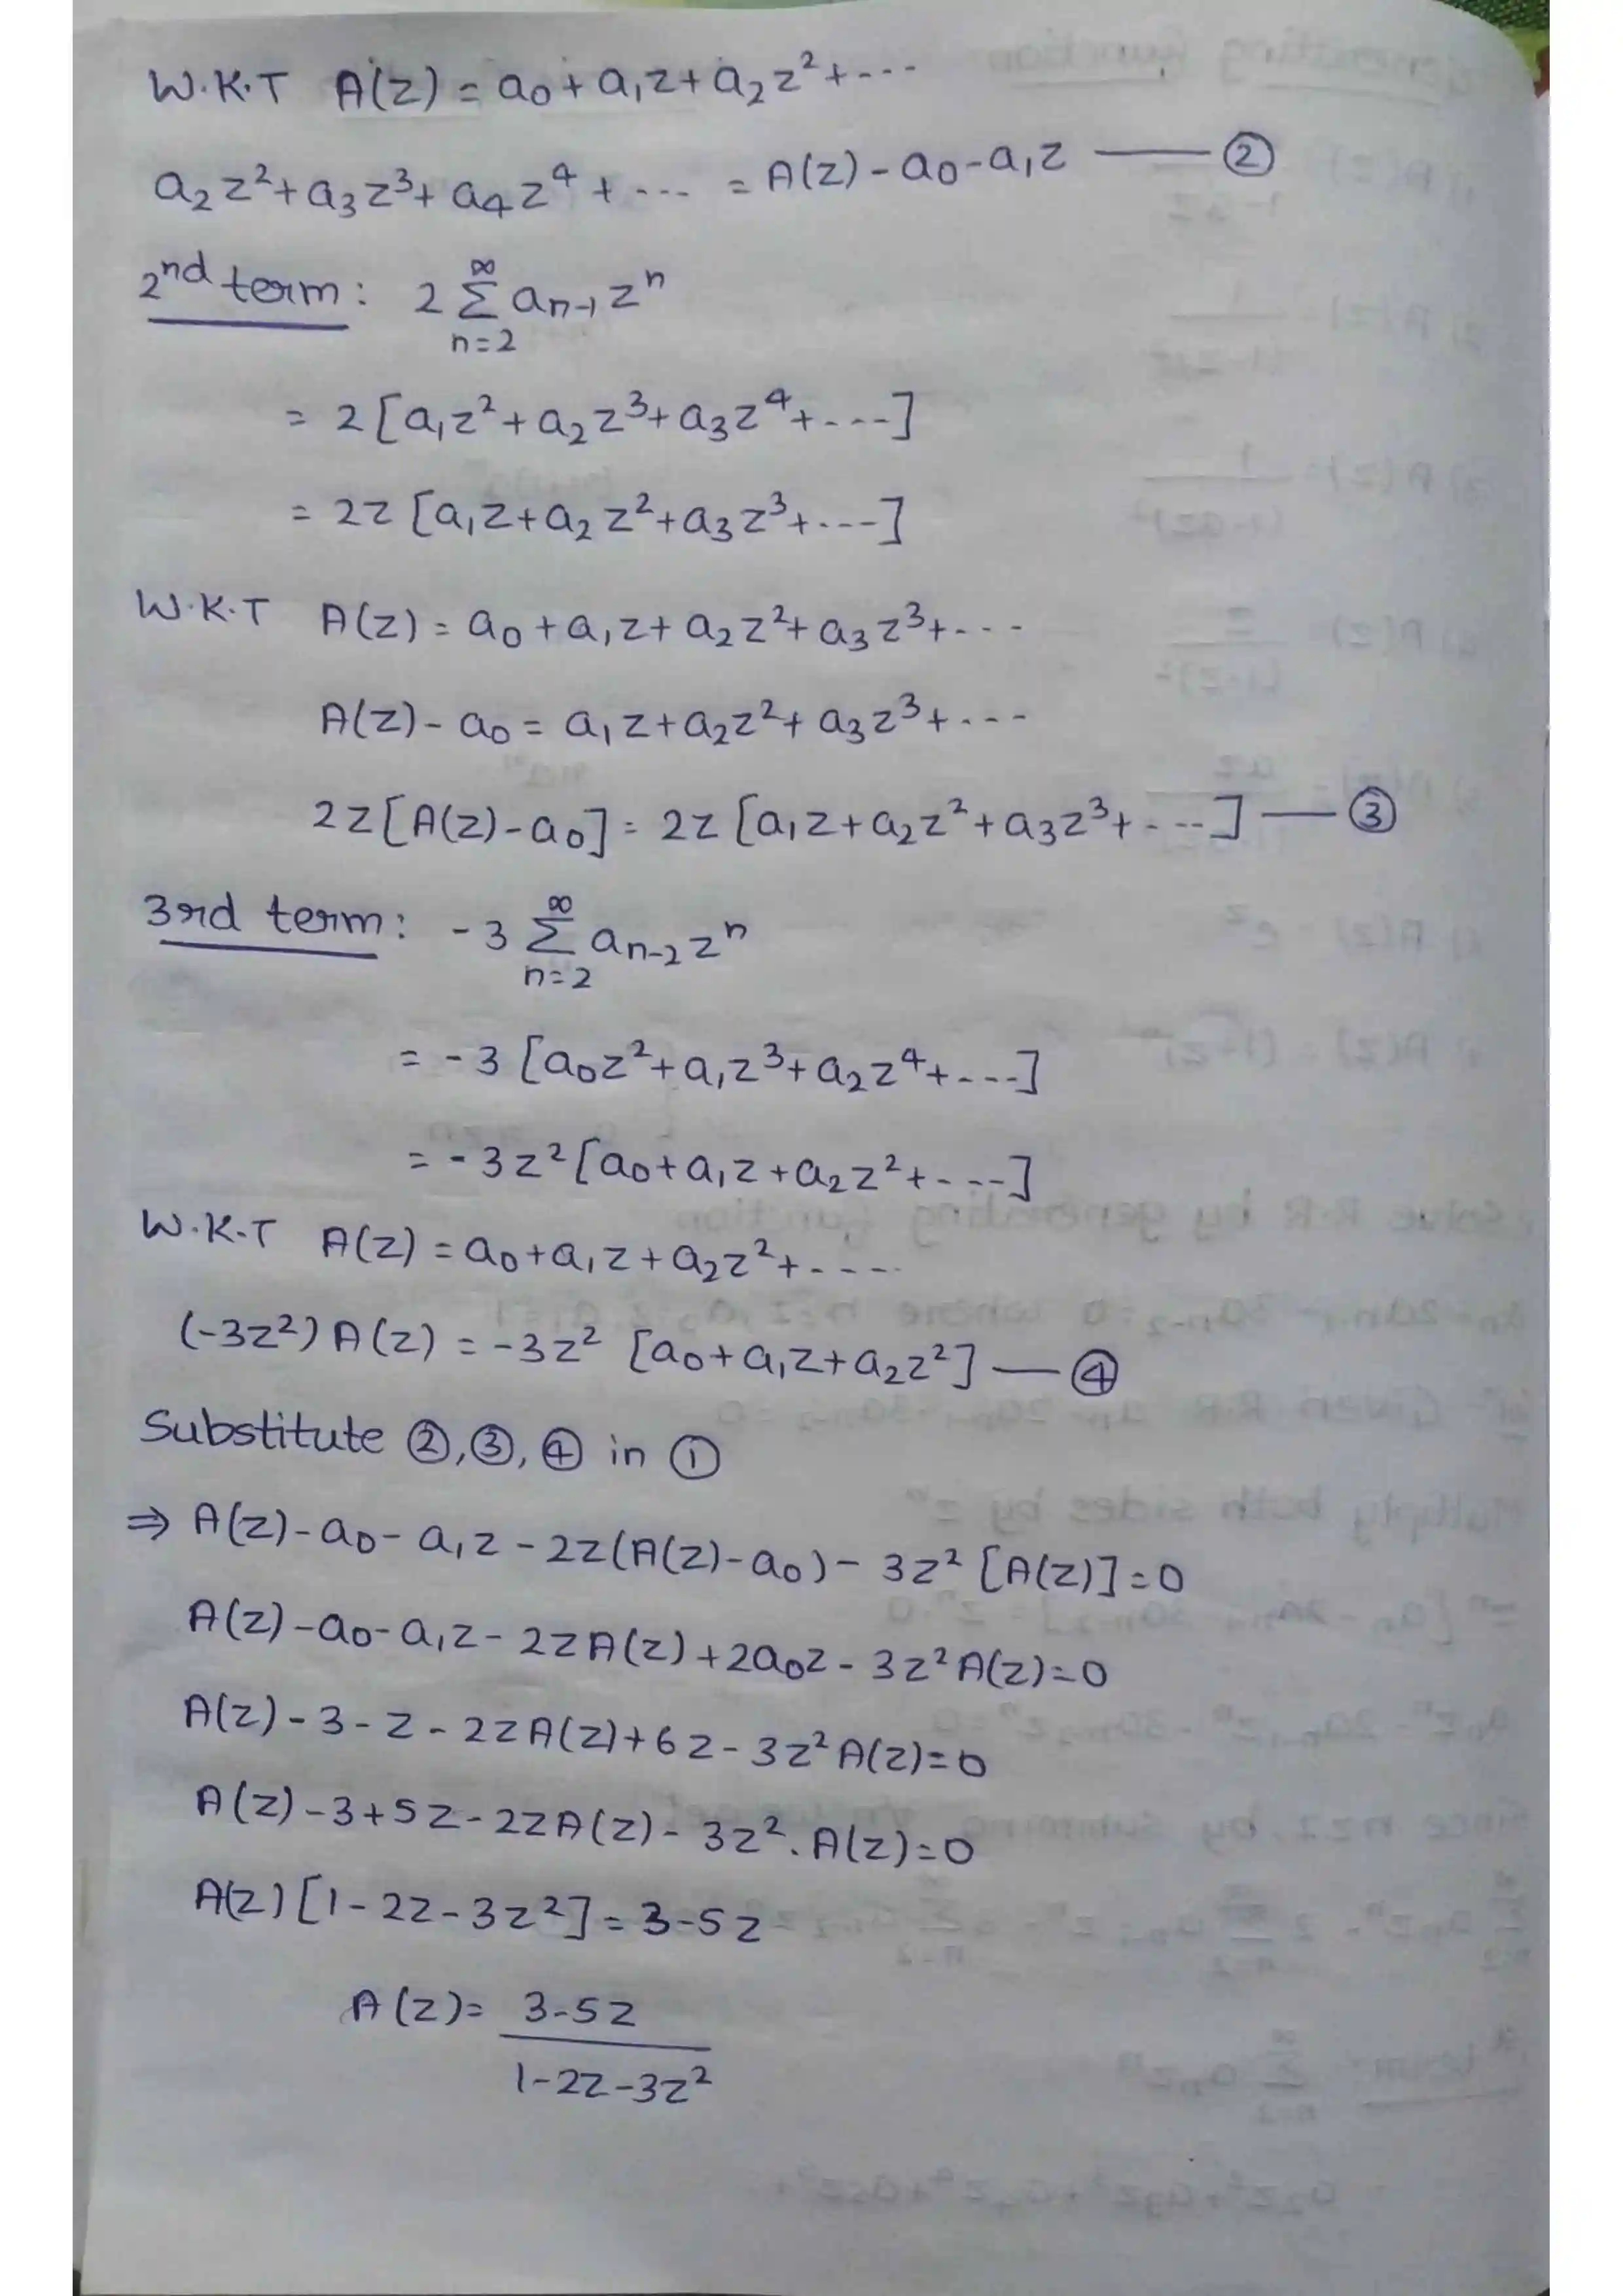 W.K.T A(z) = a₀ + a₁z + a₂z² + ---
a₂z² + a₃z³ + a₄z⁴ + --- = A(z) - a₀ - a₁z —— ②
2nd term: 2 ∑_{n=2}^{∞} aₙ₋₁ zⁿ
= 2 [a₁z² + a₂z³ + a₃z⁴ + ---]
= 2z [a₁z + a₂z² + a₃z³ + ---]
W.K.T A(z) = a₀ + a₁z + a₂z² + a₃z³ + ---
A(z) - a₀ = a₁z + a₂z² + a₃z³ + ---
2z[A(z) - a₀] = 2z [a₁z + a₂z² + a₃z³ + ---] — ③
3rd term: -3 ∑_{n=2}^{∞} aₙ₋₂ zⁿ
= -3 [a₀z² + a₁z³ + a₂z⁴ + ---]
= -3z² [a₀ + a₁z + a₂z² + ---]
W.K.T A(z) = a₀ + a₁z + a₂z² + ----
(-3z²) A(z) = -3z² [a₀ + a₁z + a₂z²] — ④
Substitute ②, ③, ④ in ①
⇒ A(z) - a₀ - a₁z - 2z(A(z) - a₀) - 3z² [A(z)] = 0
A(z) - a₀ - a₁z - 2zA(z) + 2a₀z - 3z²A(z) = 0
A(z) - 3 - z - 2zA(z) + 6z - 3z²A(z) = 0
A(z) - 3 + 5z - 2zA(z) - 3z². A(z) = 0
A(z) [1 - 2z - 3z²] = 3 - 5z
A(z) = 3 - 5z
1 - 2z - 3z²